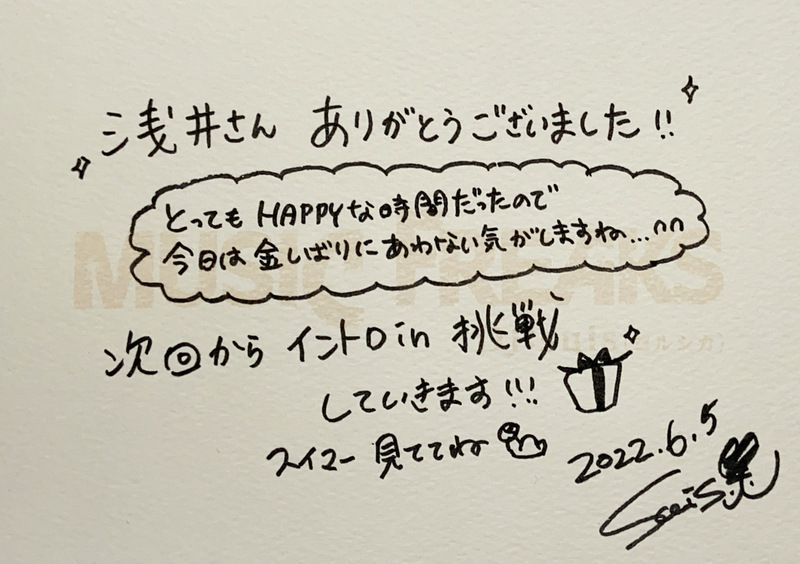 浅井さん ありがとうございました!!
とってもHAPPYな時間だったので
今日は金しばりにあわない気がしますね...^^
MUSIC FREAKS
suis(ヨルシカ)
次回から イントロin 挑戦
していきます!!!
スイマー 見ててね
2022.6.5
suis